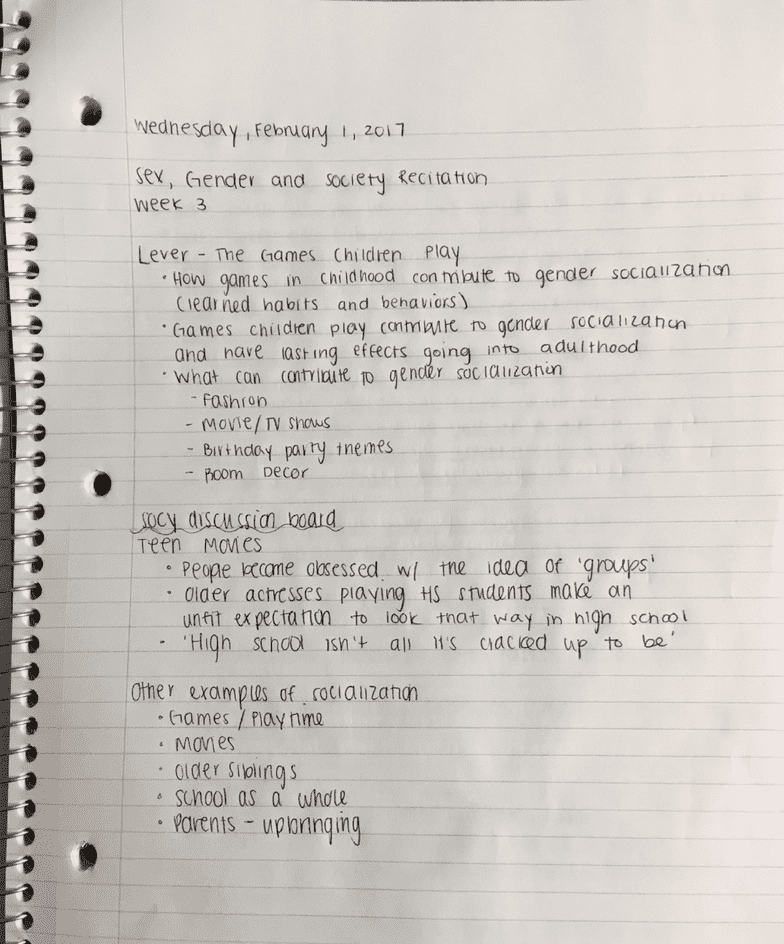 Wednesday, February 1, 2017
Sex, Gender and Society Recitation
Week 3
Lever - The Games Children Play
• How games in childhood contribute to gender socialization
(learned habits and behaviors)
• Games children play contribute to gender socialization
and have lasting effects going into adulthood
• What can contribute to gender socialization
- Fashion
- Movie/TV shows
- Birthday party themes
- Room Decor
SOCY discussion board
Teen Movies
• People become obsessed w/ the idea of 'groups'
• Older actresses playing HS students make an
unfit expectation to look that way in high school
• 'High school isn't all it's cracked up to be'
Other examples of socialization
• Games / Playtime
• Movies
• Older siblings
• School as a whole
• Parents - upbringing